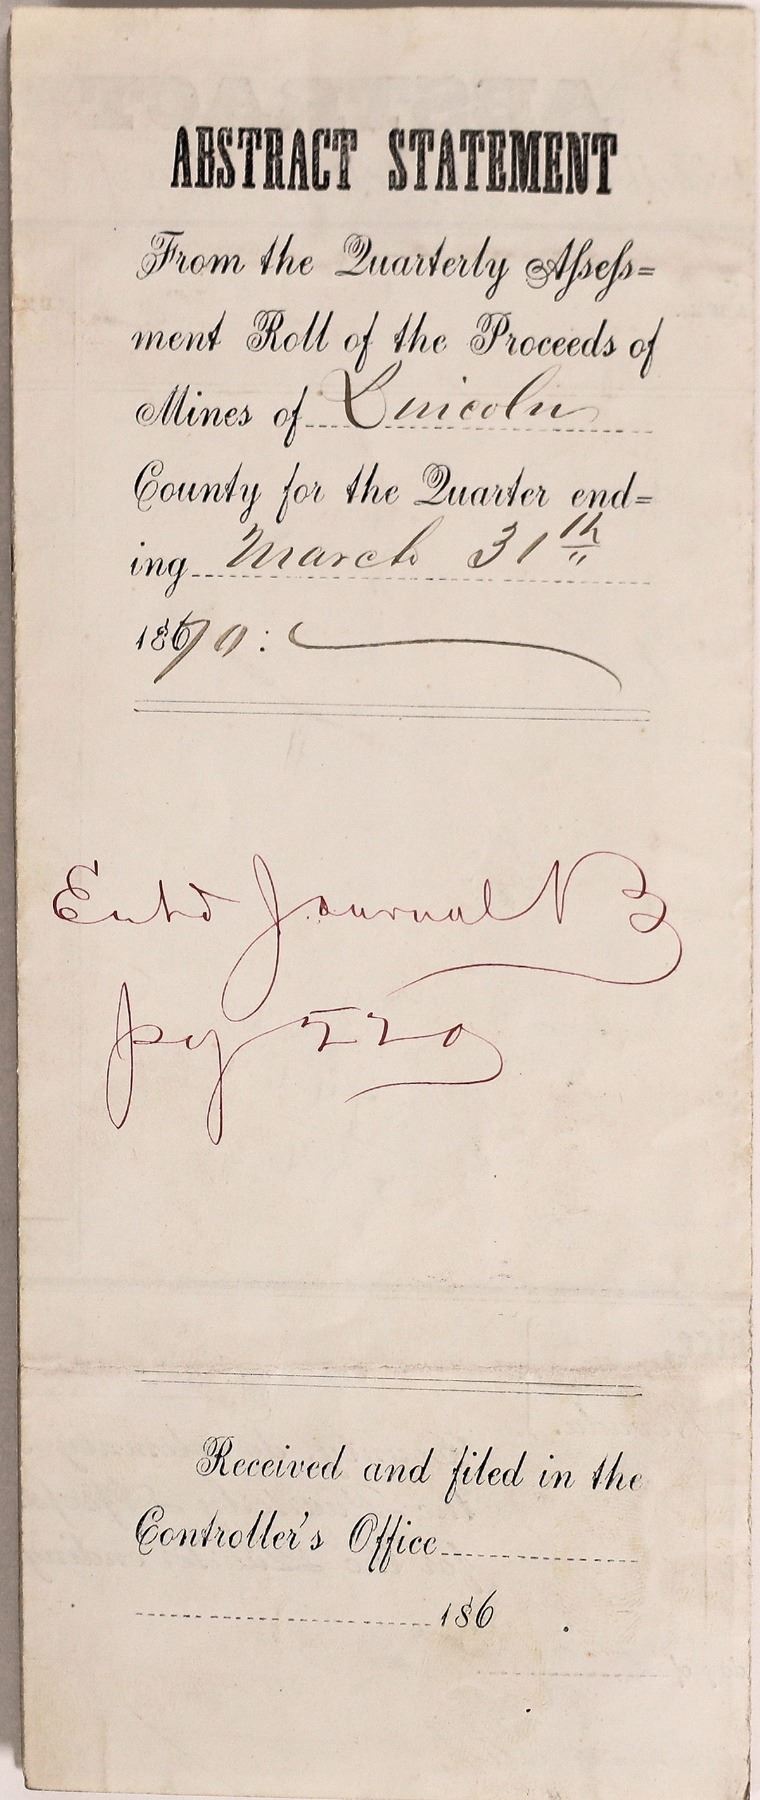 ABSTRACT STATEMENT
From the Quarterly Aſseſs=
ment Roll of the Proceeds of
Mines of Lincoln
County for the Quarter end=
ing March 31th
1870:
Entd Journal B
pg 220
Received and filed in the
Controller's Office
186 .